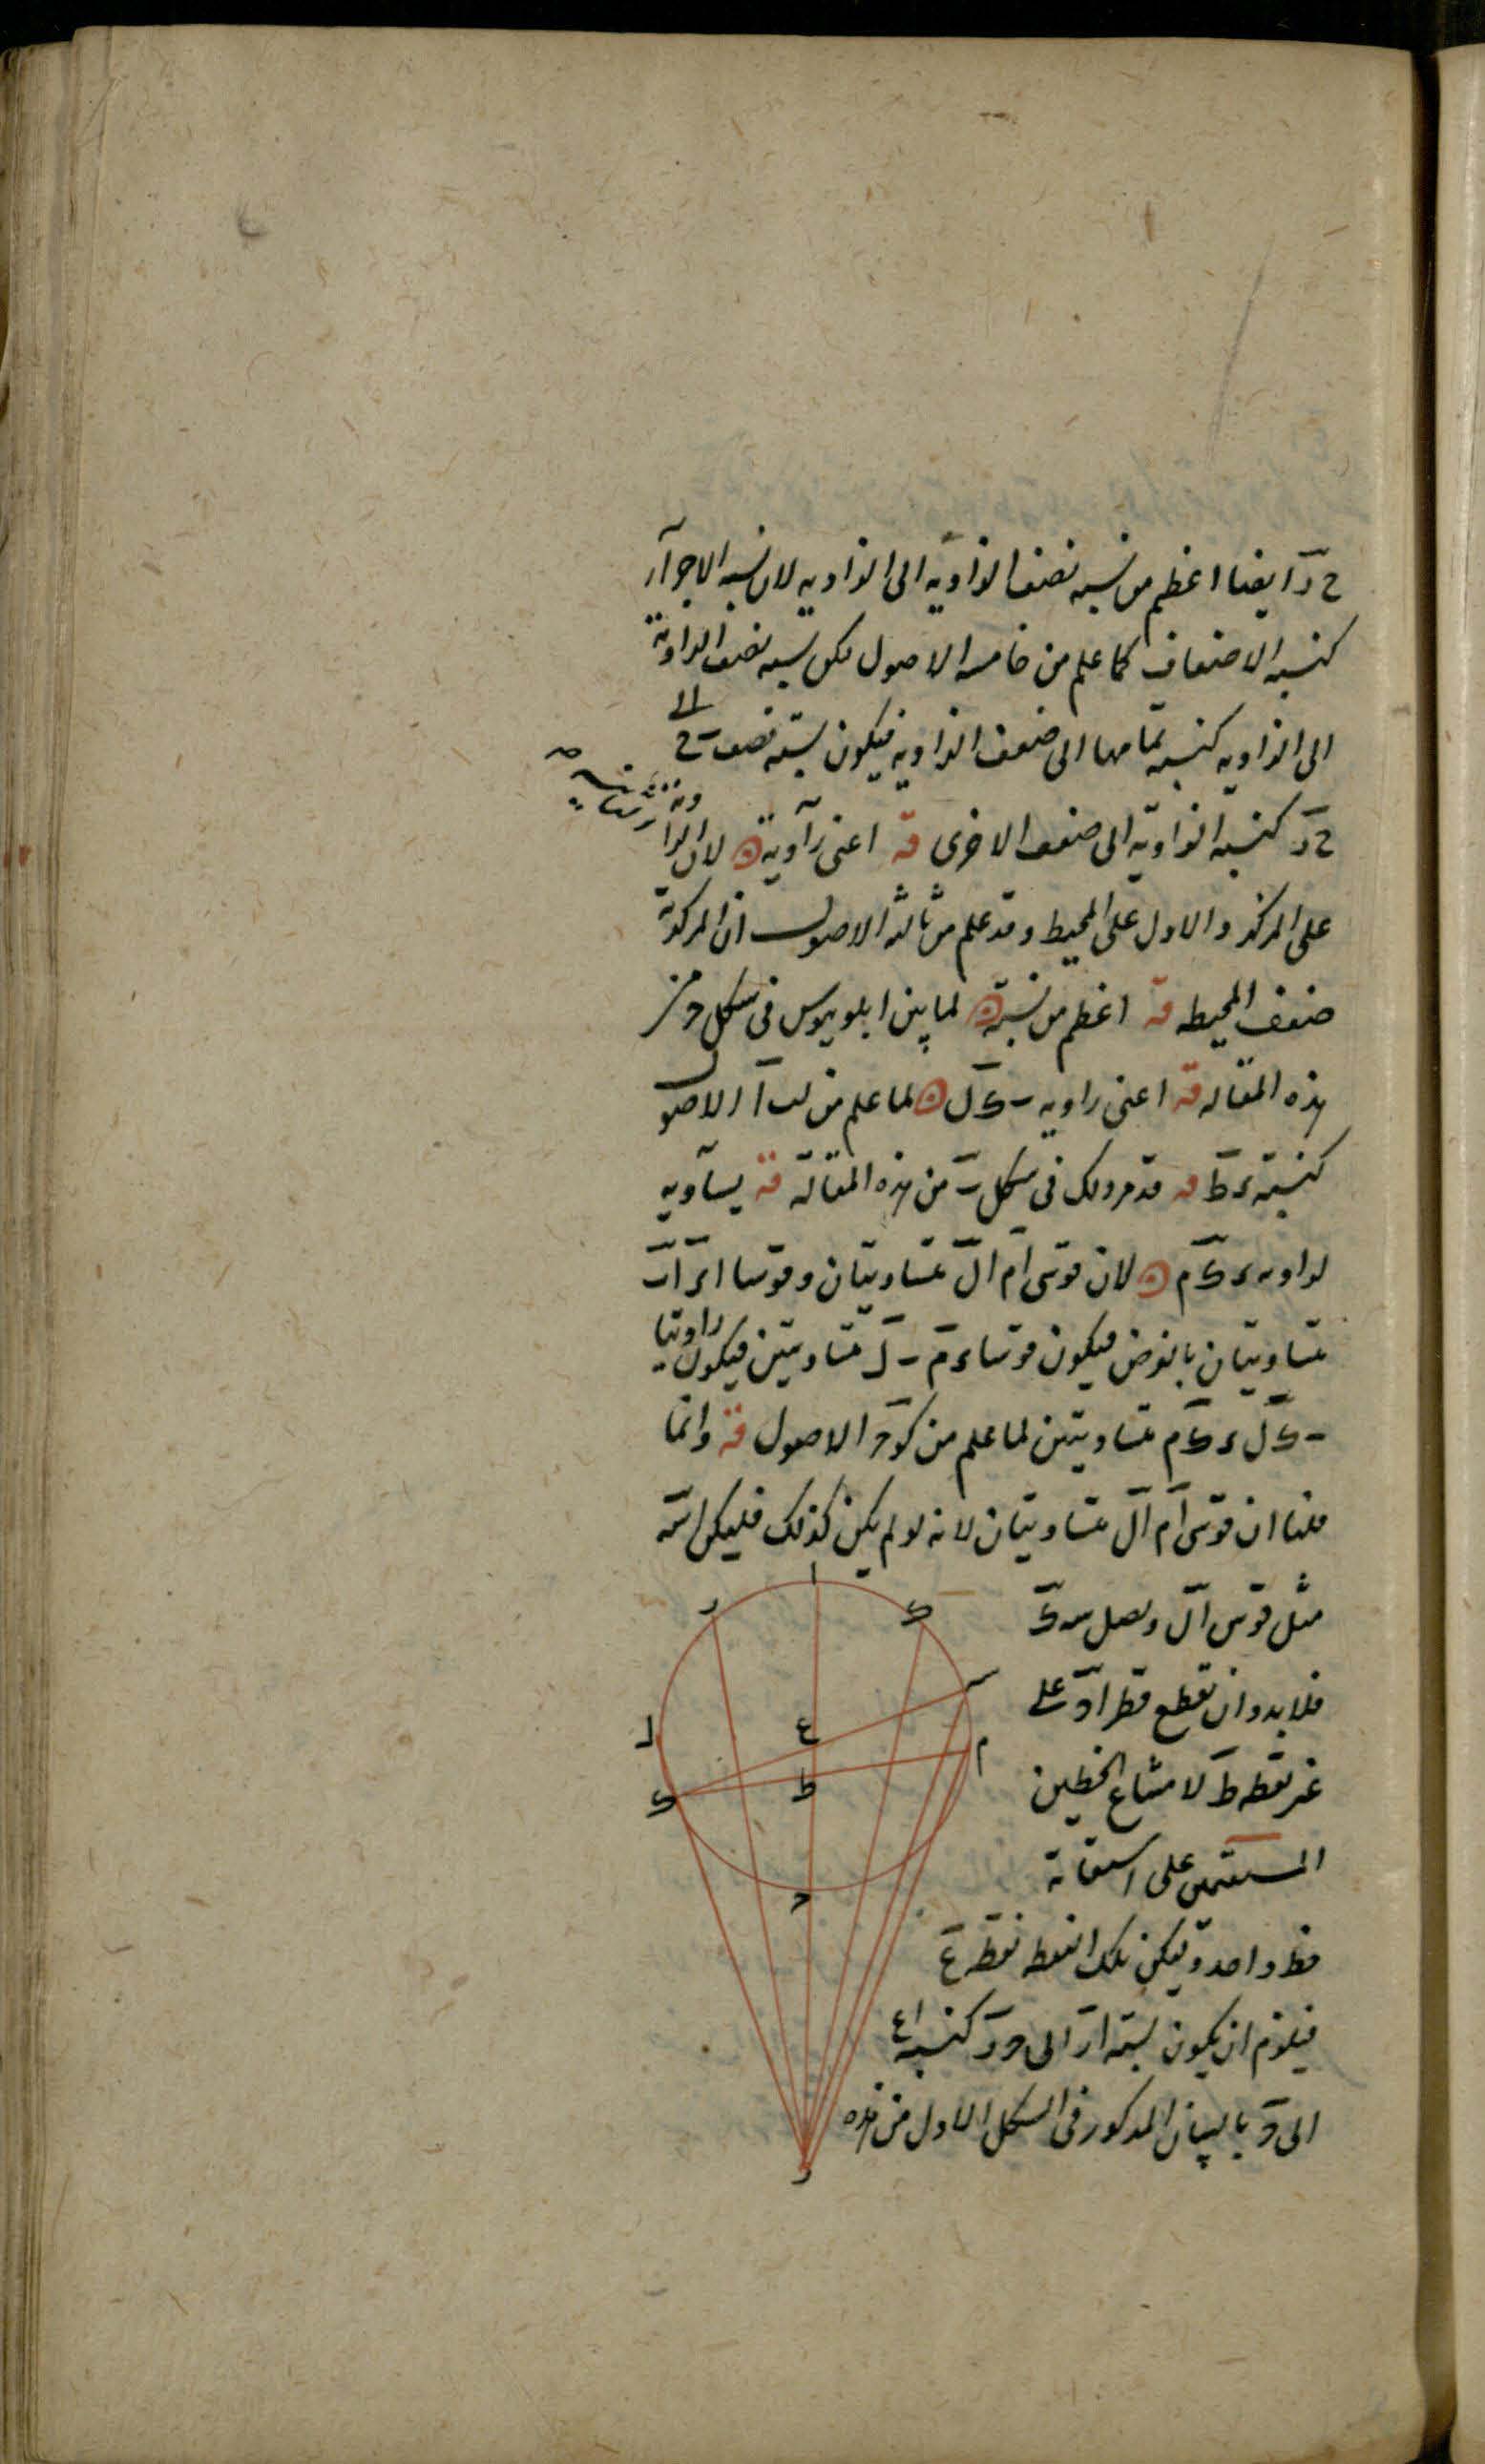 ح د ايضا اعظم من نسبه نصف الزاوية الى الزاويه لان نسبه الاجزآء
كنسبه الاضعاف كما علم من خامسه الاصول لكن نسبه نصف الزاوية
الى الزاويه كنسبه تمامها الى ضعف الزاويه فيكون نسبة نصف الى
ح د كنسبه الزاوية الى ضعف الاخرى قه اعنى زآوية ه لان الزاوية
على المركز والاول على المحيط وقد علم من ثالثه الاصول ان المركزية
ضعف المحيطه قه اعظم من نسبة ه لما بين ابلونيوس فى شكل
هذه المقاله قه اعنى زاويه ب ك ل ه لما علم من الاصول
كنسبة ء ط قه قد مر ذلك فى شكل ب من هذه المقالة قه يساويه
لزاويه ء ك م ه لان قوسى ام ال متساويتان وقوسا اء اب
متساويتان بالفرض فيكون قوسا ء م ب ل متساويتين فيكون زاويتا
ب ك ل ء ك م متساويتين لما علم من الاصول قه وانما
قلنا ان قوسى ام ال متساويتان لانه لو لم يكن كذلك فليكن اس
مثل قوس ال ونصل س ك
فلا بد وان تقطع قطر اح على
غير نقطه ط لامتناع الخطين
المستقيمين على استقامة
خط واحد وليكن تلك النقطه نقطة ع
فيلزم ان يكون نسبة ار الى ح ر كنسبه اع
الى ح بالبيان المذكور فى الشكل الاول من هذه
ا
ر
ك
س
ل
ع
م
ط
ك
ح
د